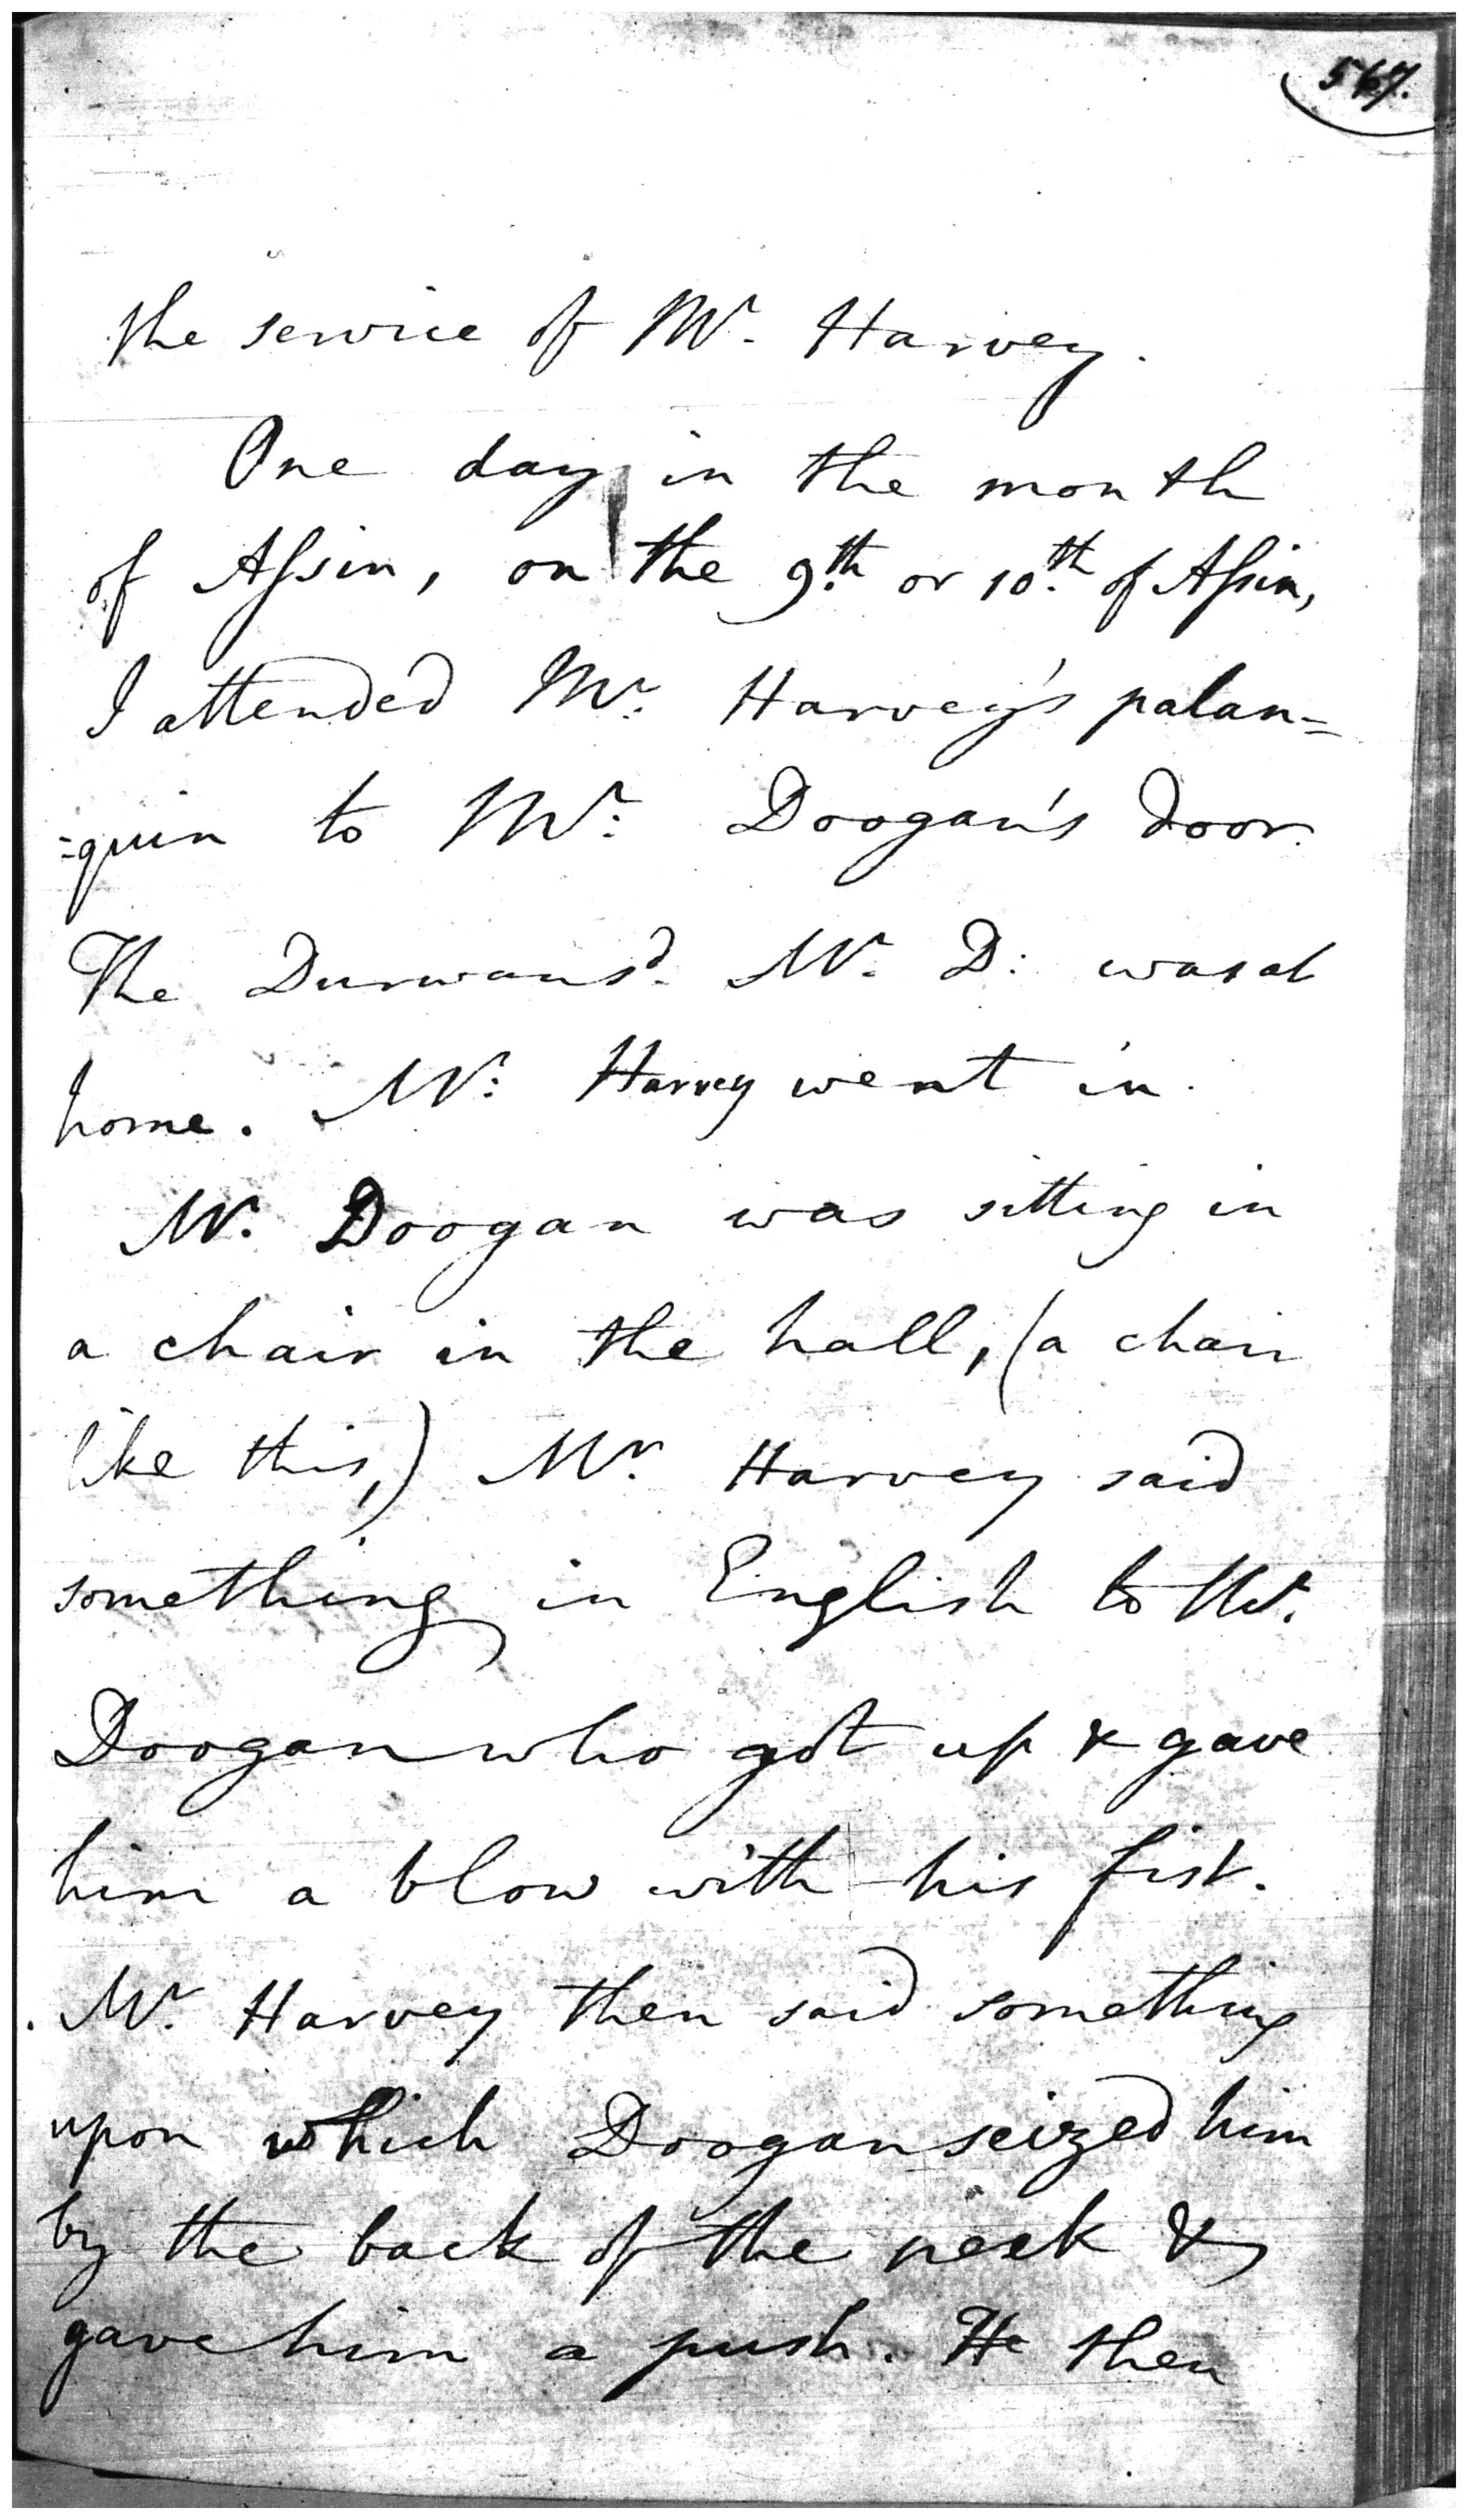 567.
the service of Mr. Harvey.
One day in the month
of Assin, on the 9th. or 10th. of Assin,
I attended Mr. Harvey's palan=
=quin to Mr. Doogan's door.
The Durwan sd. Mr. D: was at
home. Mr. Harvey went in.
Mr. Doogan was sitting in
a chair in the hall, (a chair
like this,) Mr. Harvey said
something in English to Mr.
Doogan who got up & gave
him a blow with his fist.
Mr. Harvey then said something
upon which Doogan seized him
by the back of the neck &
gave him a push. He then